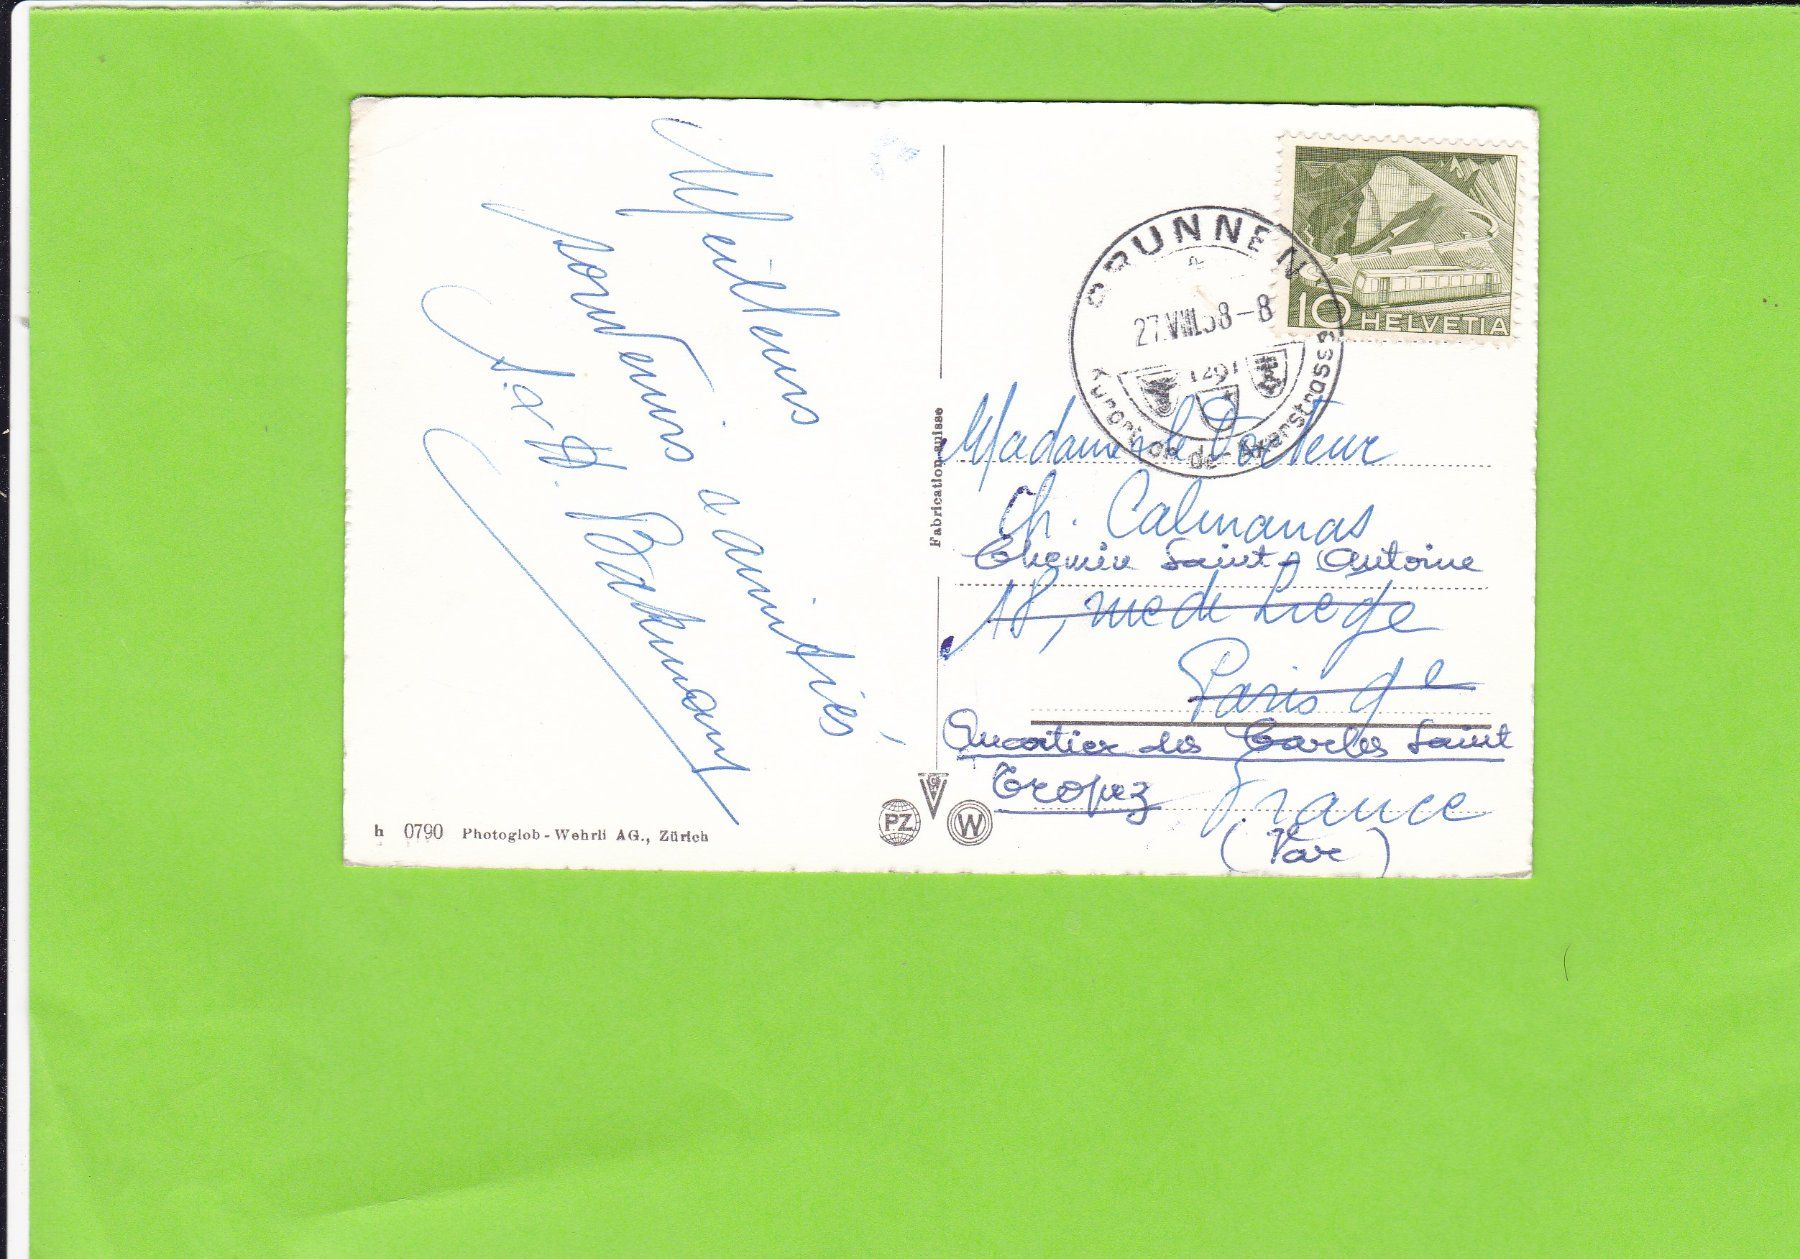 Meilleurs
souvenirs & amitiés!
J. & D. Bakmann
h 0790 Photoglob-Wehrli AG., Zürich
Fabrication suisse
PZ
W
BRUNNEN
27.VIII.58-8
1291
Kurort an der Axenstrasse
10 HELVETIA
Madame le Docteur
Ch. Calmanas
Chemin Saint-Antoine
18, rue de Liège
Paris 9e
Quartier des Carles Saint
Tropez France
(Var)